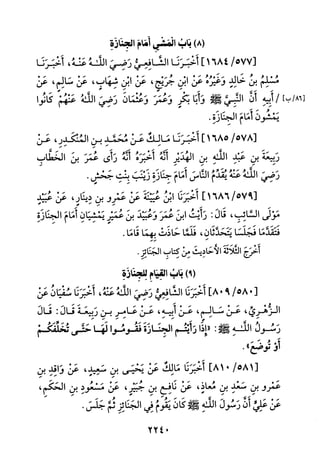 (٨) بَابُ المَشْيِ أَمَامَ الجِنَازَةِ
[١٦٨٤/٥٧٧] أَخْبَرَنَا الشَّافِعِيُّ رَضِيَ اللَّهُ عَنْهُ، أَخْبَرَنَا
مُسْلِمُ بنُ خَالِدٍ وَغَيْرُهُ عَنْ ابْنِ جُرَيْجٍ، عَنْ ابْنِ شِهَابٍ، عَنْ سَالِمٍ، عَنْ
[٨٦/ب] / أَبِيهِ أَنَّ النَّبِيَّ ﷺ وَأَبَا بَكْرٍ وَعُمَرَ وَعُثْمَانَ رَضِيَ اللَّهُ عَنْهُمْ كَانُوا
يَمْشُونَ أَمَامَ الجِنَازَةِ.
[١٦٨٥/٥٧٨] أَخْبَرَنَا مَالِكٌ عَنْ مُحَمَّدِ بنِ المُنْكَدِرِ، عَنْ
رَبِيعَةَ بنِ عَبْدِ اللَّهِ بنِ الهُدَيْرِ أَنَّهُ أَخْبَرَهُ أَنَّهُ رَأَى عُمَرَ بنَ الخَطَّابِ
رَضِيَ اللَّهُ عَنْهُ يَقْدُمُ النَّاسَ أَمَامَ جِنَازَةِ زَيْنَبَ بِنْتِ جَحْشٍ.
[١٦٨٦/٥٧٩] أَخْبَرَنَا ابْنُ عُيَيْنَةَ عَنْ عَمْرِو بنِ دِينَارٍ، عَنْ عُبَيْدٍ
مَوْلَى السَّائِبِ، قَالَ: رَأَيْتُ ابنَ عُمَرَ وَعُبَيْدَ بنَ عُمَيْرٍ يَمْشِيَانِ أَمَامَ الجِنَازَةِ
فَتَقَدَّمَا فَجَلَسَا يَتَحَدَّثَانِ، فَلَمَّا حَاذَتْ بِهِمَا قَامَا.
أَخْرَجَ الثَّلَاثَةَ الأَحَادِيثَ مِنْ كِتَابِ الجَنَائِزِ.
(٩) بَابُ القِيَامِ لِلجِنَازَةِ
[٨٠٩/٥٨٠] أَخْبَرَنَا الشَّافِعِيُّ رَضِيَ اللَّهُ عَنْهُ، أَخْبَرَنَا سُفْيَانُ عَنْ
الزُّهْرِيِّ، عَنْ سَالِمٍ، عَنْ أَبِيهِ، عَنْ عَامِرِ بنِ رَبِيعَةَ قَالَ: قَالَ
رَسُولُ اللَّهِ ﷺ: «إِذَا رَأَيْتُم الجِنَازَةَ فَقُومُوا لَهَا حَتَّى تُخَلِّفَكُمْ
أَوْ تُوضَعَ».
[٨١٠/٥٨١] أَخْبَرَنَا مَالِكٌ عَنْ يَحْيَى بنِ سَعِيدٍ، عَنْ وَاقِدِ بنِ
عَمْرِو بنِ سَعْدِ بنِ مُعَاذٍ، عَنْ نَافِعِ بنِ جُبَيْرٍ، عَنْ مَسْعُودِ بنِ الحَكَمِ،
عَنْ عَلِيٍّ أَنَّ رَسُولَ اللَّهِ ﷺ كَانَ يَقُومُ فِي الجَنَائِزِ ثُمَّ جَلَسَ.
٢٢٤٠